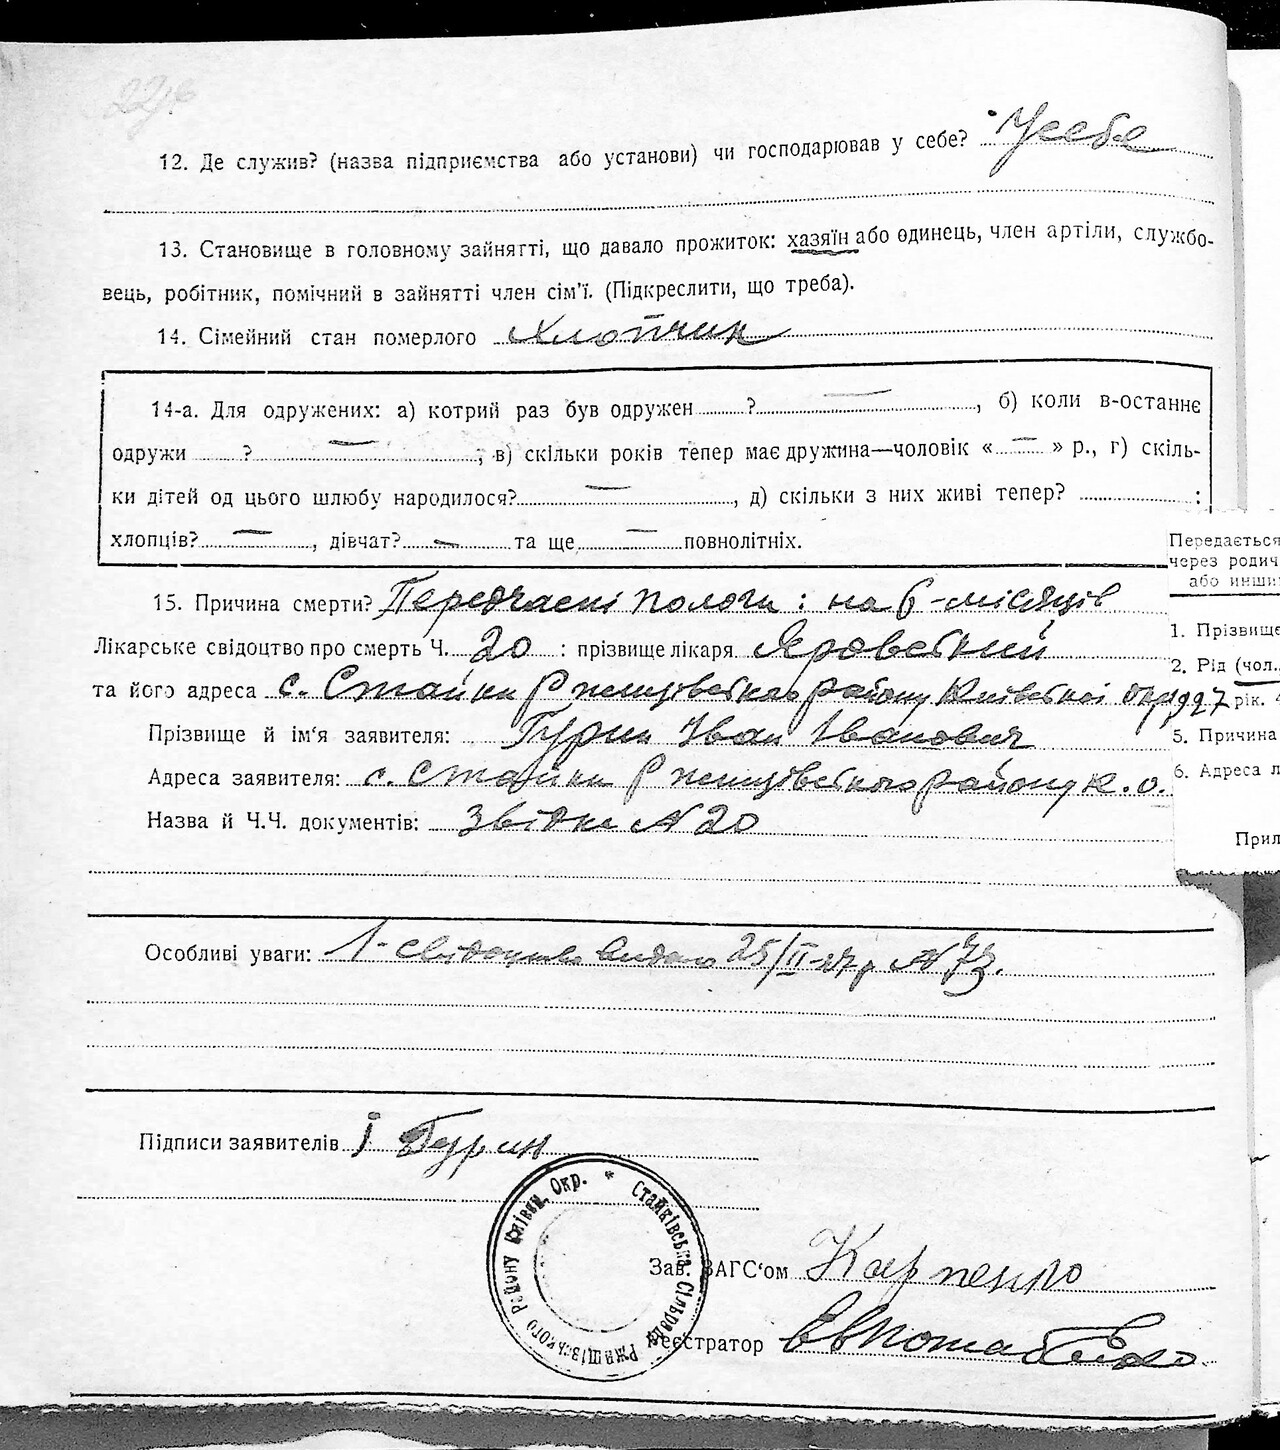 12. Де служив? (назва підприємства або установи) чи господарював у себе? У себе
13. Становище в головному зайнятті, що давало прожиток: хазяїн або одинець, член артіли, службо-
вець, робітник, помічний в зайнятті член сім'ї. (Підкреслити, що треба).
14. Сімейний стан померлого Хлопчик
14-а. Для одружених: а) котрий раз був одружен ? —, б) коли в-останнє
одружи ? — ; в) скільки років тепер має дружина—чоловік « — » р., г) скіль-
ки дітей од цього шлюбу народилося? —, д) скільки з них живі тепер? :
хлопців? —, дівчат? — та ще — повнолітніх.
15. Причина смерти? Передчасні пологи: на 6-місяців
Лікарське свідоцтво про смерть Ч. 20 : прізвище лікаря Яровский
та його адреса с. Стайки Ржищівського району Київської окр
Прізвище й ім'я заявителя: Гурин Іван Іванович
Адреса заявителя: с. Стайки Ржищівського району К. о.
Назва й Ч.Ч. документів: Звідка №20
Особливі уваги: 1-свідоцтво видано 25/II-27р №73.
Підписи заявителів І Гурин
Стайківська Сільрада Ржищівського Району Київщ. Окр. *
Зав. ЗАГС'ом Карпенко
Реєстратор
Передається
через родич
або инши
1. Прізвище
2. Рід (чол.
927 рік. 4
5. Причина
6. Адреса л
Прил